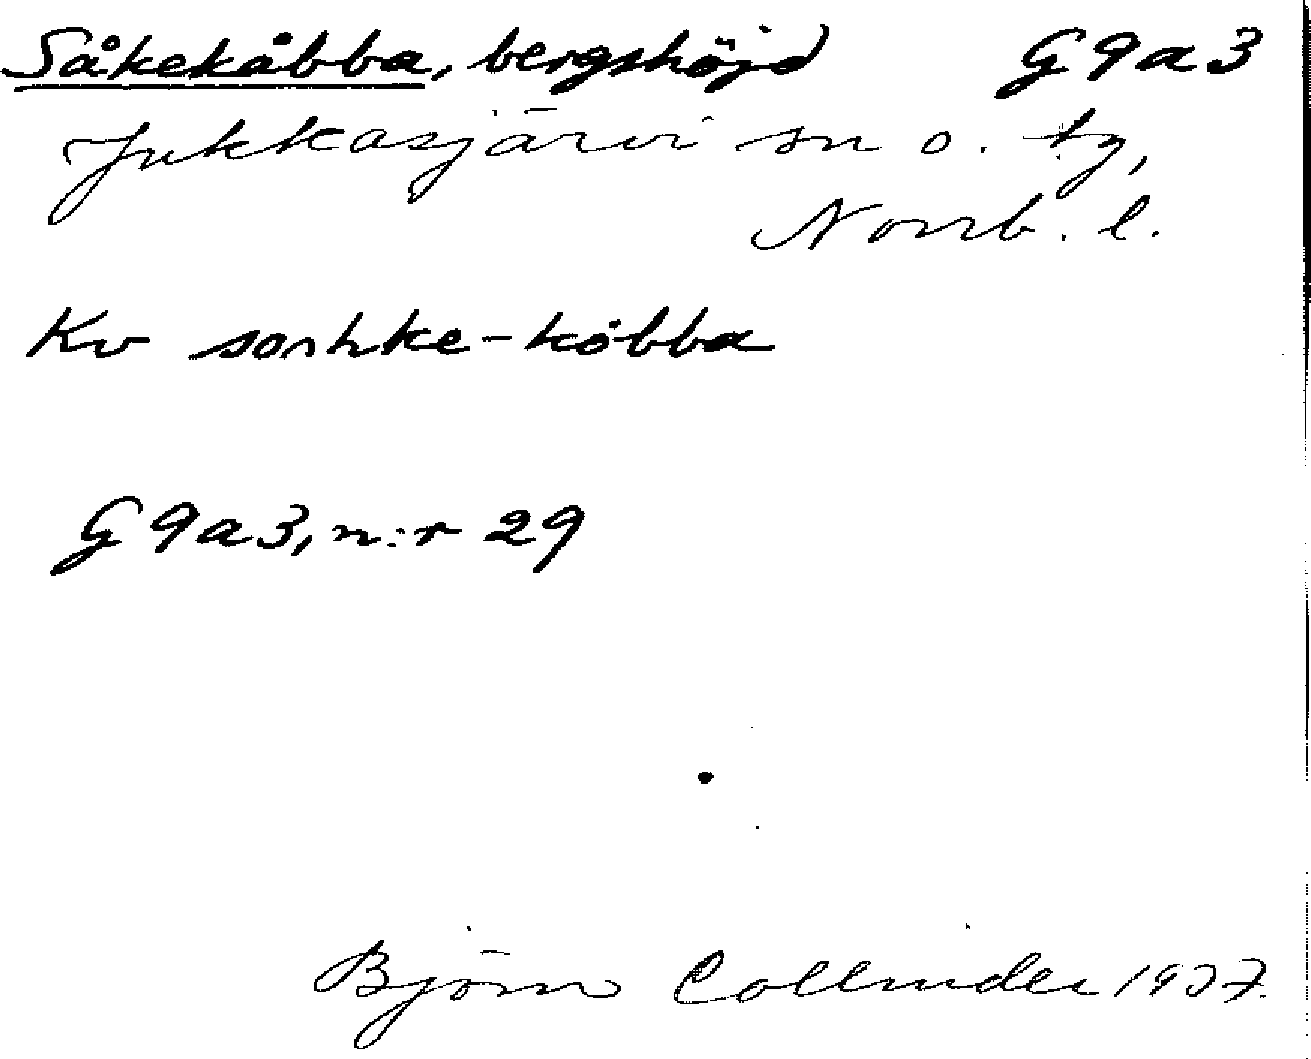 Såkekåbba, bergshöjd G9a3
Jukkasjärvi sn o. tg,
Norrb. l.
Kv sorhke-kåbba
G9a3, n:r 29
Björn Collinder 1937.